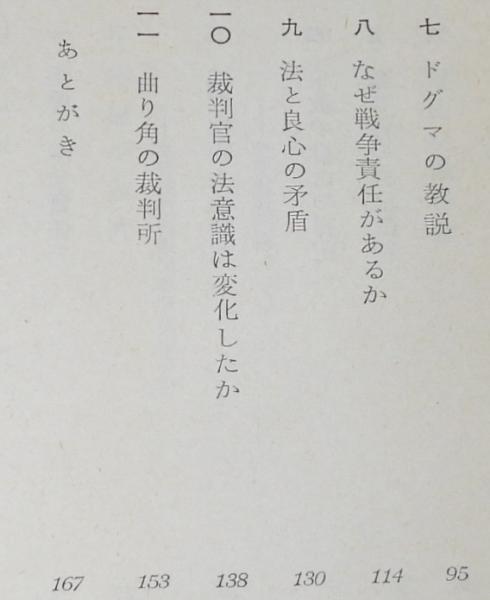 七 ドグマの教説 95
八 なぜ戦争責任があるか 114
九 法と良心の矛盾 130
一〇 裁判官の法意識は変化したか 138
一一 曲り角の裁判所 153
あとがき 167